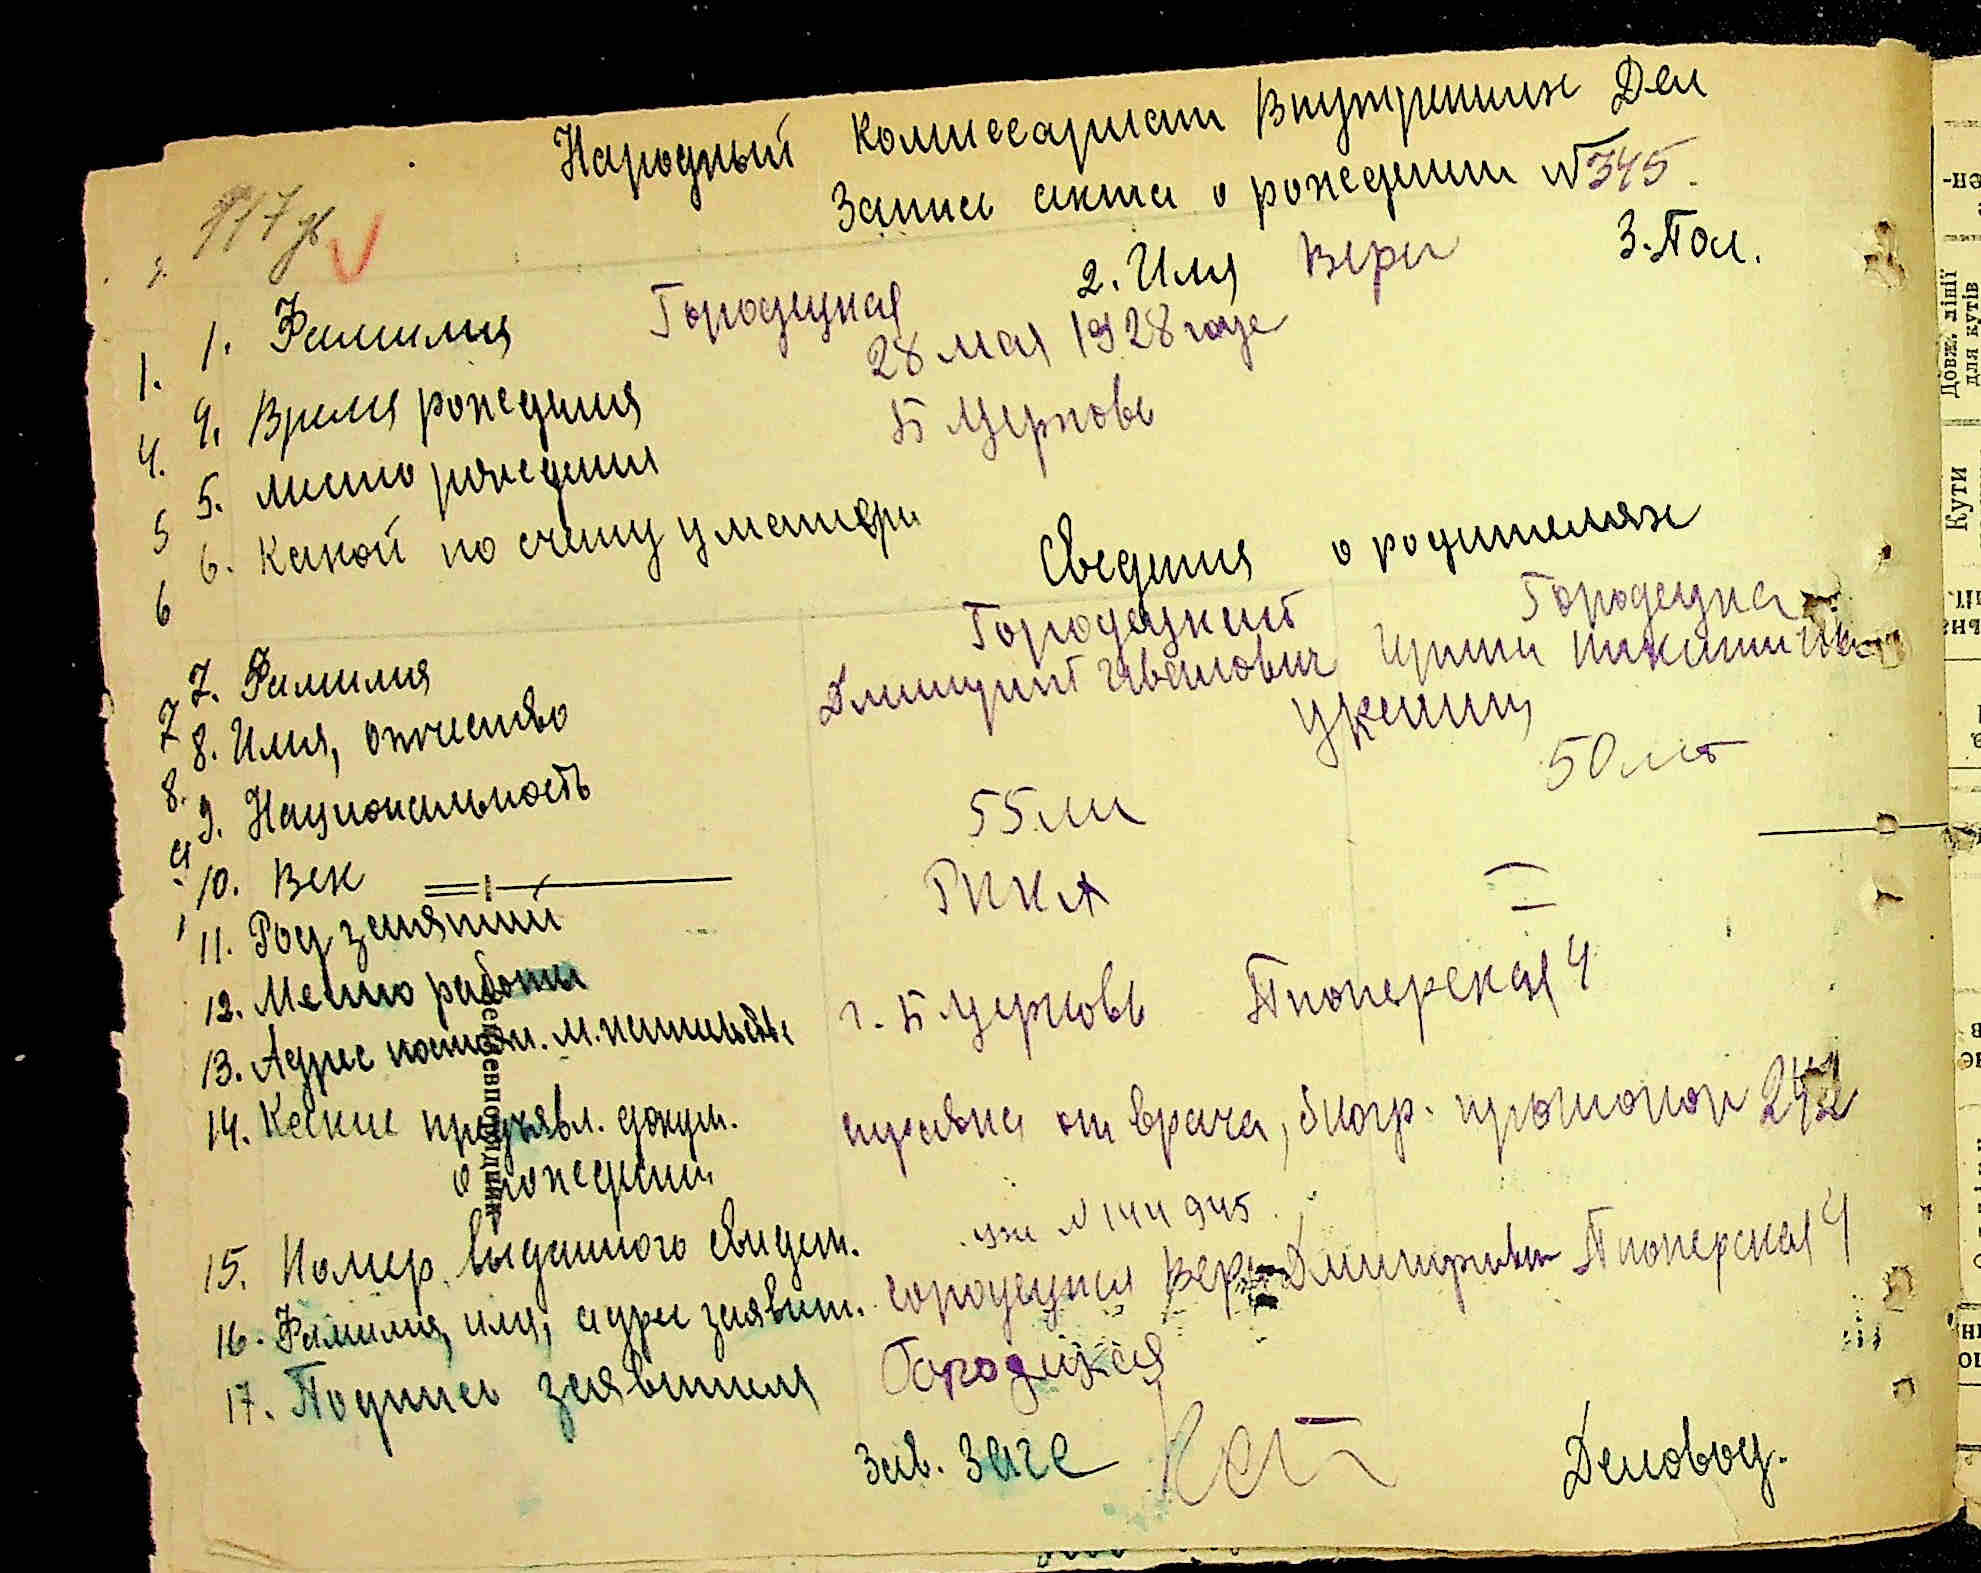 Народный Комиссариат Внутренних Дел
Запись акта о рождении №345.
117
1. 1. Фамилия Городецкая 2. Имя Вера 3. Пол.
4. 4. Время рождения 28 мая 1928 года
5 5. место рождения Б Церковь
6 6. Какой по счету у матери
Сведения о родителях
7 7. Фамилия Городецкий Городецка
8. 8. Имя, отчество Дмитрий Иванович Ирина Никити
9. Национальность Украин
10. Век 55 ле 50 лет
11. Род занятий РККА
12. Место работы
13. Адрес постоян. м. жительств г. Б Церковь Пионерская 4
14. Какие предъявл. докум. справка от врача, протокол 242
о рождении
15. Номер выданного свидет. № 144945
16. Фамилия, имя, адрес заявит. Городецкая Вера Дмитриевн Пионерская 4
17. Подпись заявителя Городецкая
Зав. Загс Деловод.
Довж. лінії
для кутів
Кути